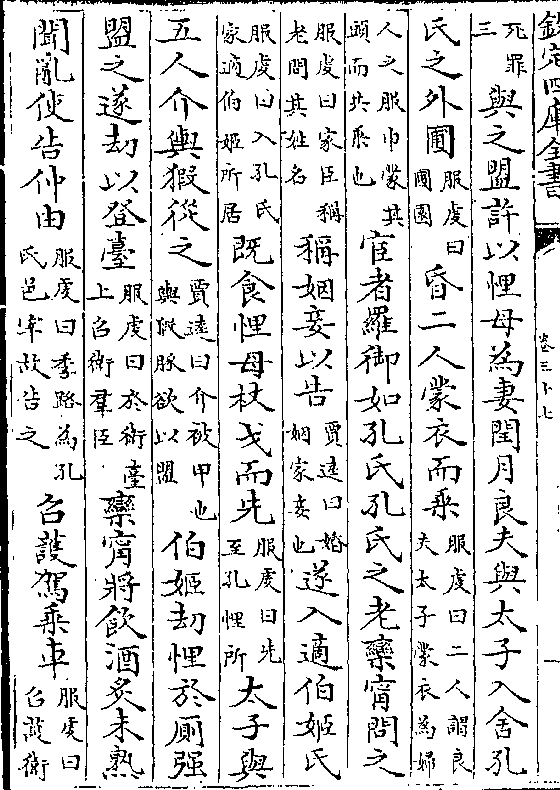 欽定四庫全書
卷三十七
死罪三與之盟許以悝母為妻閏月良夫與太子入舍孔
氏之外圃服虔曰圃園昏二人蒙衣而乘服虔曰二人謂良夫太子蒙衣為婦
人之服巾蒙其頭而共乘也宦者羅御如孔氏孔氏之老欒甯問之
服虔曰家臣稱老問其姓名稱姻妾以告賈逵曰婚姻家妾也遂入適伯姬氏
服虔曰入孔氏家適伯姬所居既食悝母杖戈而先服虔曰先至孔悝所太子與
五人介輿猳從之賈逵曰介被甲也輿猳豚欲以盟伯姬劫悝於厠强
盟之遂劫以登臺服虔曰於衛臺上召衛羣臣欒甯將飲酒炙未熟
聞亂使告仲由服虔曰季路為孔氏邑宰故告之召護駕乘車服虔曰召護衛